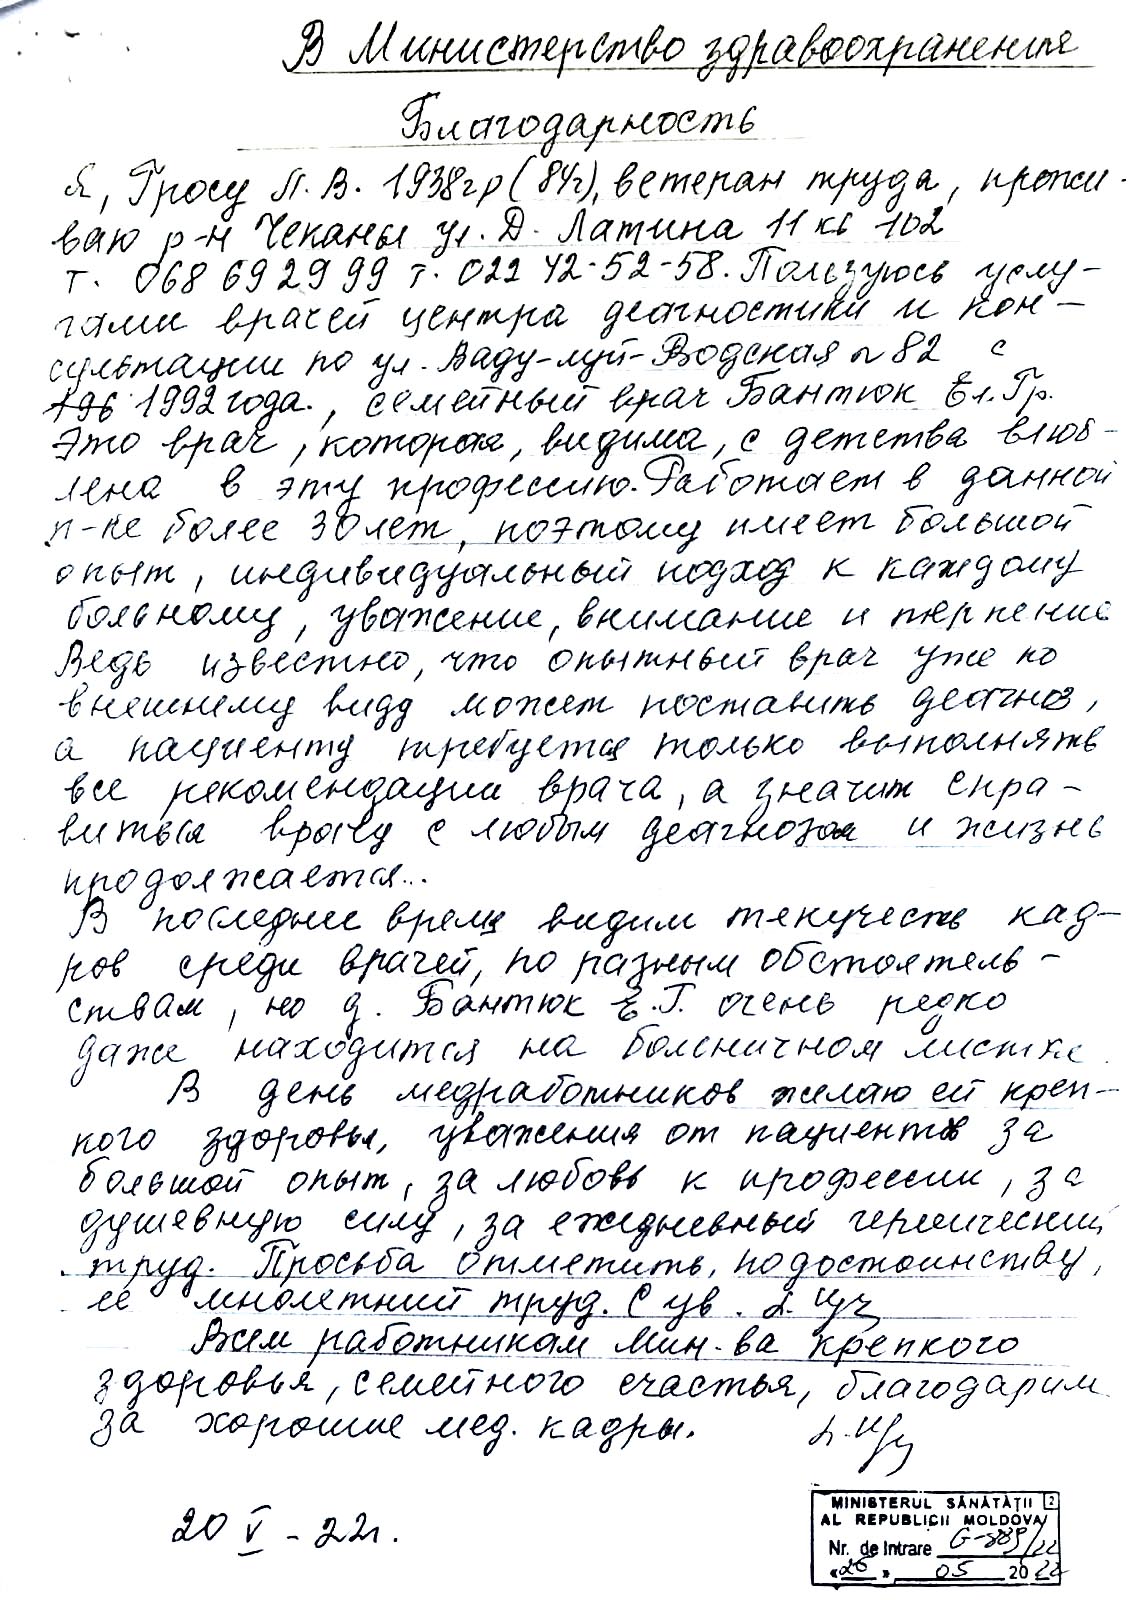 В Министерство здравоохранения
Благодарность
Я, Гросу Л. В. 1938гр (84г), ветеран труда, прожи-
ваю р-н Чеканы ул. Д. Латина 11 кв 102
т. 068 69 29 99 т. 022 42-52-58. Пользуюсь услу-
гами врачей центра деагностики и кон-
сультации по ул. Ваду-луй-Водская №82 с
196 1992 года., семейный врач Бантюк Ел. Гр.
Это врач, которая, видима, с детства влюб-
лена в эту профессию. Работает в данной
п-ке более 30 лет, поэтому имеет большой
опыт, индивидуальный подход к каждому
больному, уважение, внимание и терпение
Ведь известно, что опытный врач уже по
внешнему виду может поставить деагноз,
а пациенту требуется только выполнять
все рекомендации врача, а значит спра-
виться врачу с любым деагнозом и жизнь
продолжается...
В последнее время видим текучесть кад-
ров среди врачей, по разным обстоятель-
ствам, но д. Бантюк Е. Г. очень редко
даже находится на больничном листке
В день медработников желаю ей креп-
кого здоровья, уважения от пациентов за
большой опыт, за любовь к профессии, за
душевную силу, за ежедневный героический
труд. Просьба отметить, по достоинству,
ее мнолетний труд. С ув.
Всем работникам Мин-ва крепкого
здоровья, семейного счастья, благодарим
за хорошие мед. кадры.
20 V - 22г.
MINISTERUL SĂNĂTĂȚII 2
AL REPUBLICII MOLDOVA
Nr. de intrare G-889/22
«26» 05 2022